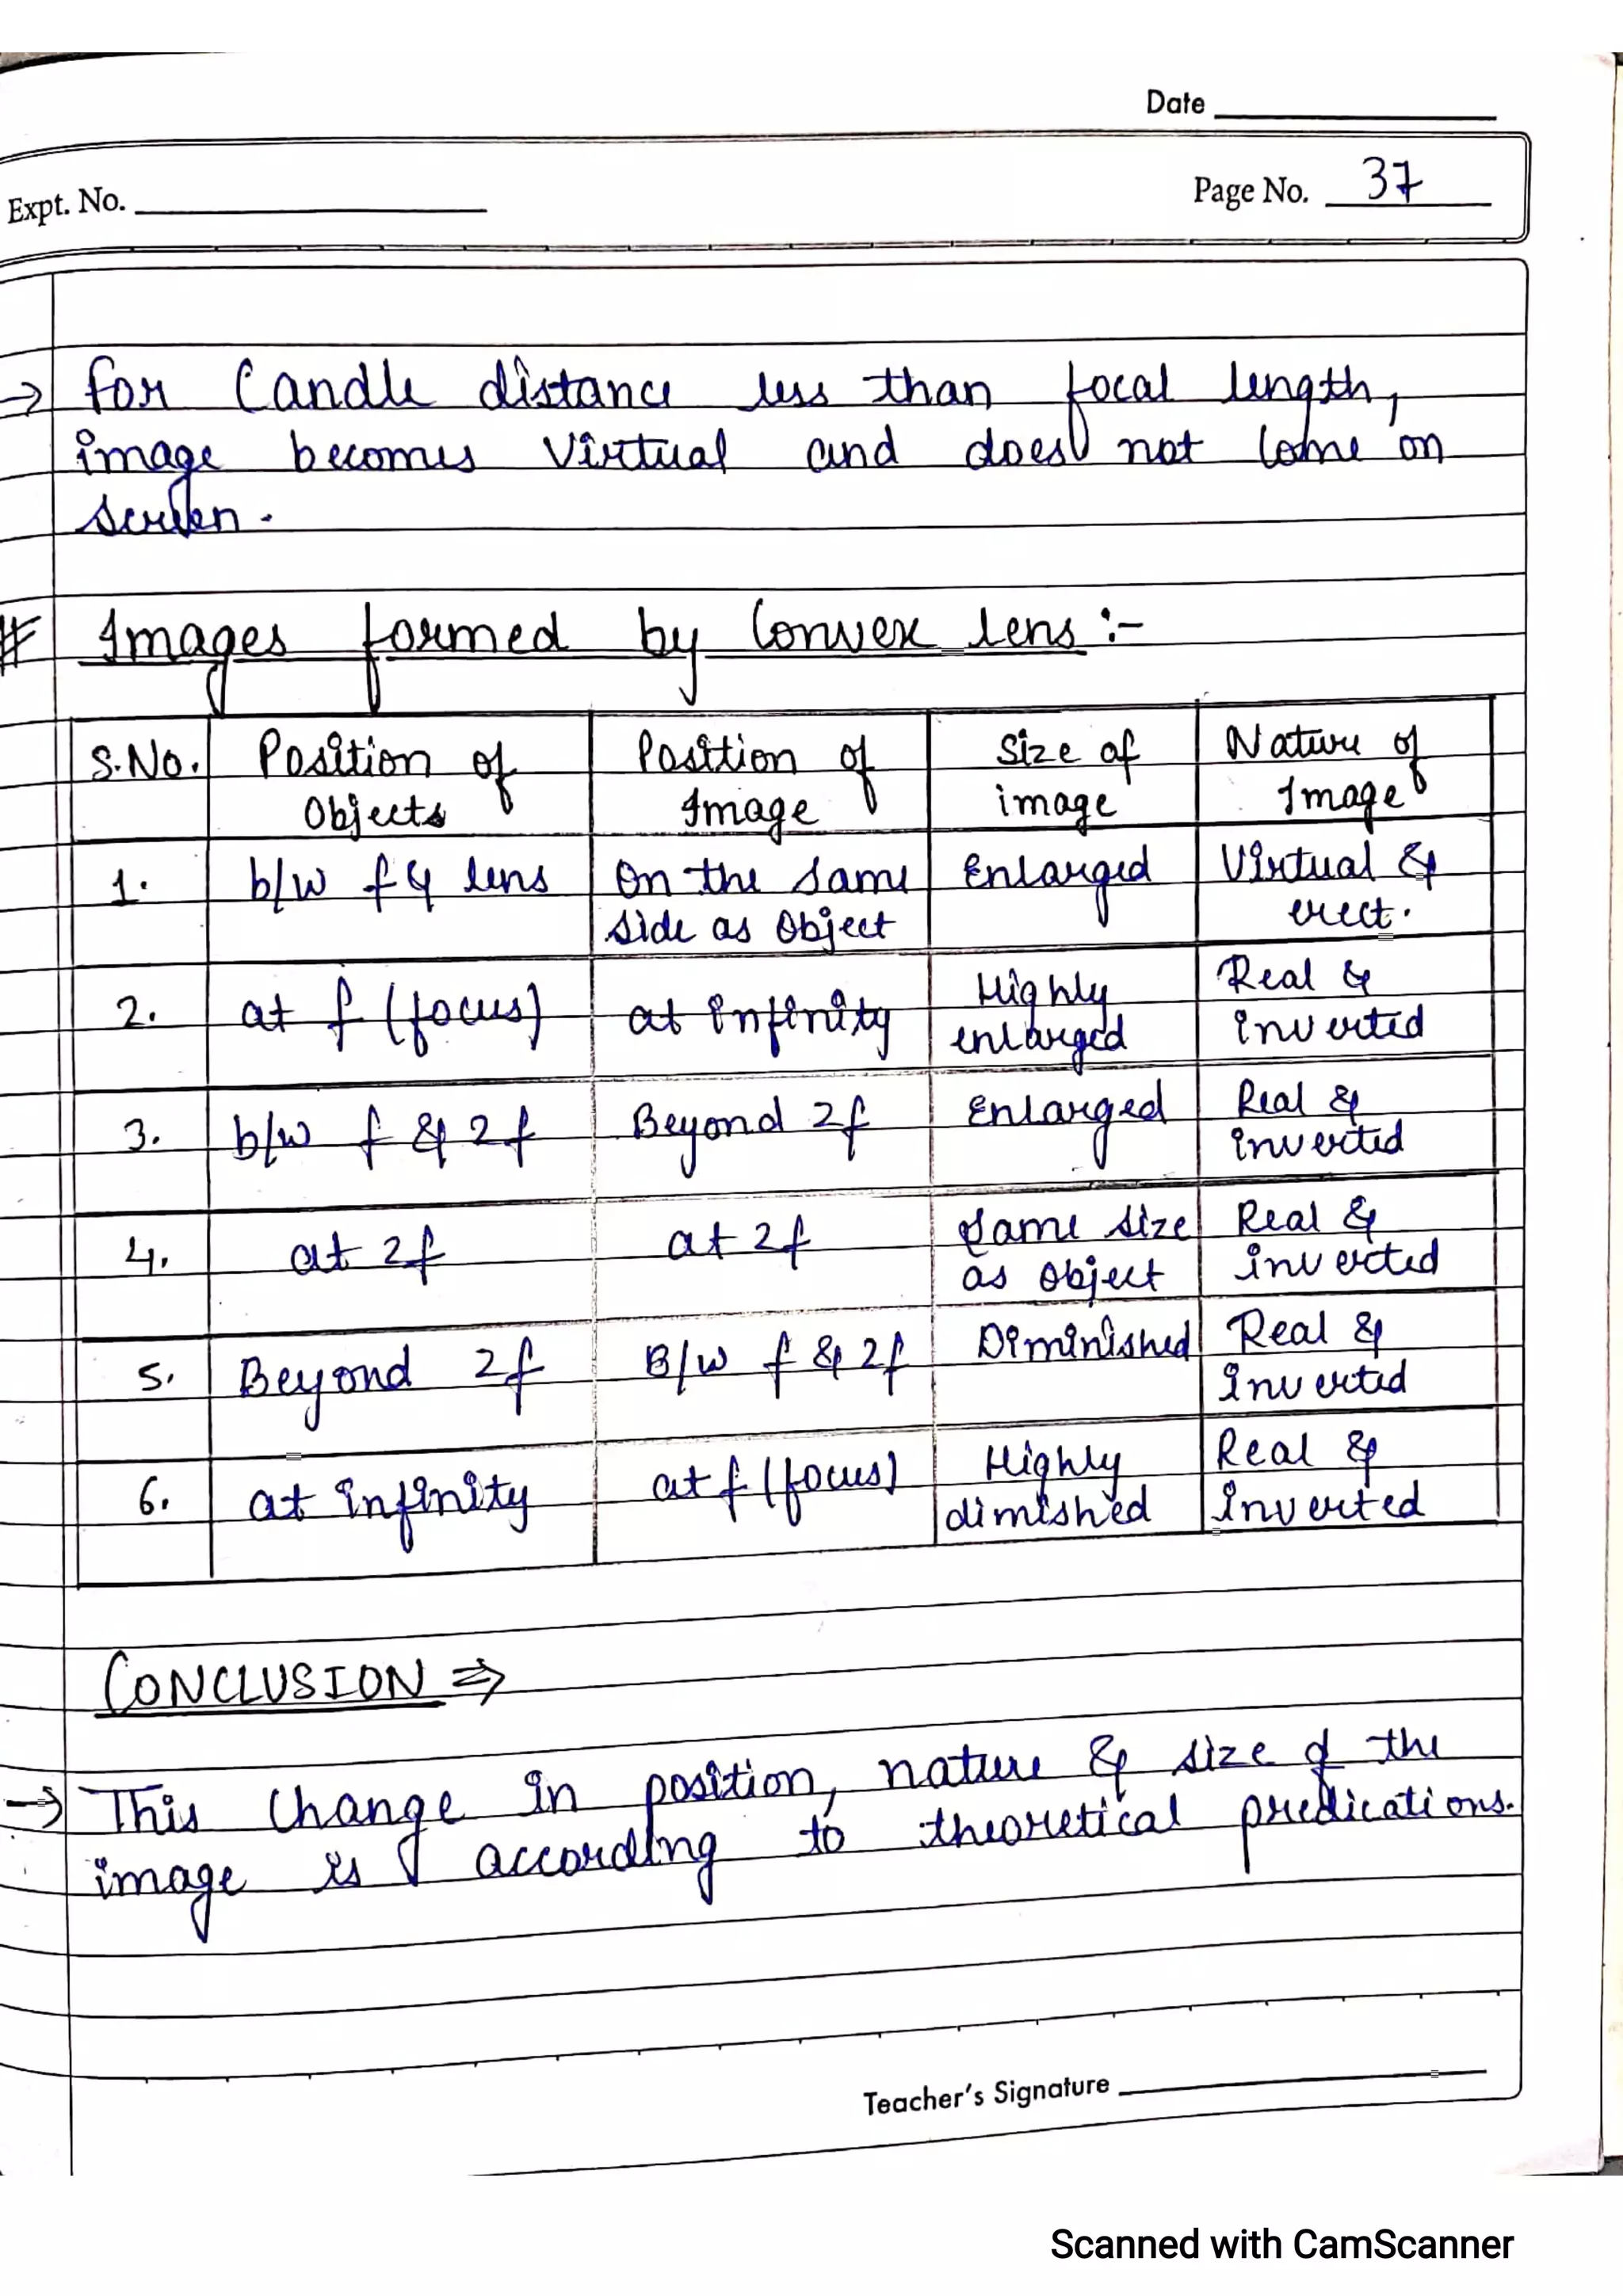 Date
Expt. No.
Page No. 37
→ for Candle distance less than focal length,
image becomes virtual and does not come on
screen.
# Images formed by Convex lens :-
S.No. Position of Objects Position of Image Size of image Nature of Image
1. b/w f & lens On the same side as Object Enlarged Virtual & erect.
2. at f (focus) at infinity Highly enlarged Real & inverted
3. b/w f & 2f Beyond 2f Enlarged Real & inverted
4. at 2f at 2f Same size as object Real & inverted
5. Beyond 2f B/w f & 2f Diminished Real & inverted
6. at infinity at f (focus) Highly dimished Real & inverted
CONCLUSION ⇒
→ This change in position, nature & size of the
image is according to theoretical predications.
Teacher's Signature
Scanned with CamScanner